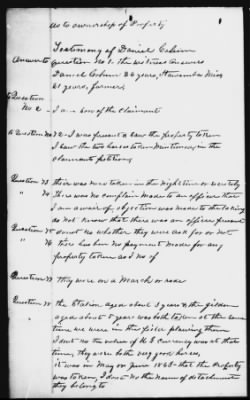 as to ownership of Property
Testimony of Daniel Coburn
Answer to question No 1. the witness answers
Daniel Coburn 26 years, Itawamba Miss
21 years, farmer,
to Question
No 2 - I am a son of the claimant
to Question No 72 - I was present & saw the property taken
I saw the two horses taken mentioned in the
claimants petition,
Question 73 there was none taken in the night time or secretly
" 74 There was no complain made to an officer that
I am aware of, objection was made to the taking
do not know that there was an officer present
Question 75 do not no whether they were ask for or not
" 76 there has bin no payment made for any
property taken as I no of
Question 77 they were on a March or rade
Question 78 the Stalion aged about 3 years & the gilden
aged about 8 years was both taken at the same
time we were in the field plowing them
I dont no the value of U.S. Currency was at that
time, they were both very good horses,
it was in May or June 1863 that the property
was taken, I dont no the name of detachment
they belong to